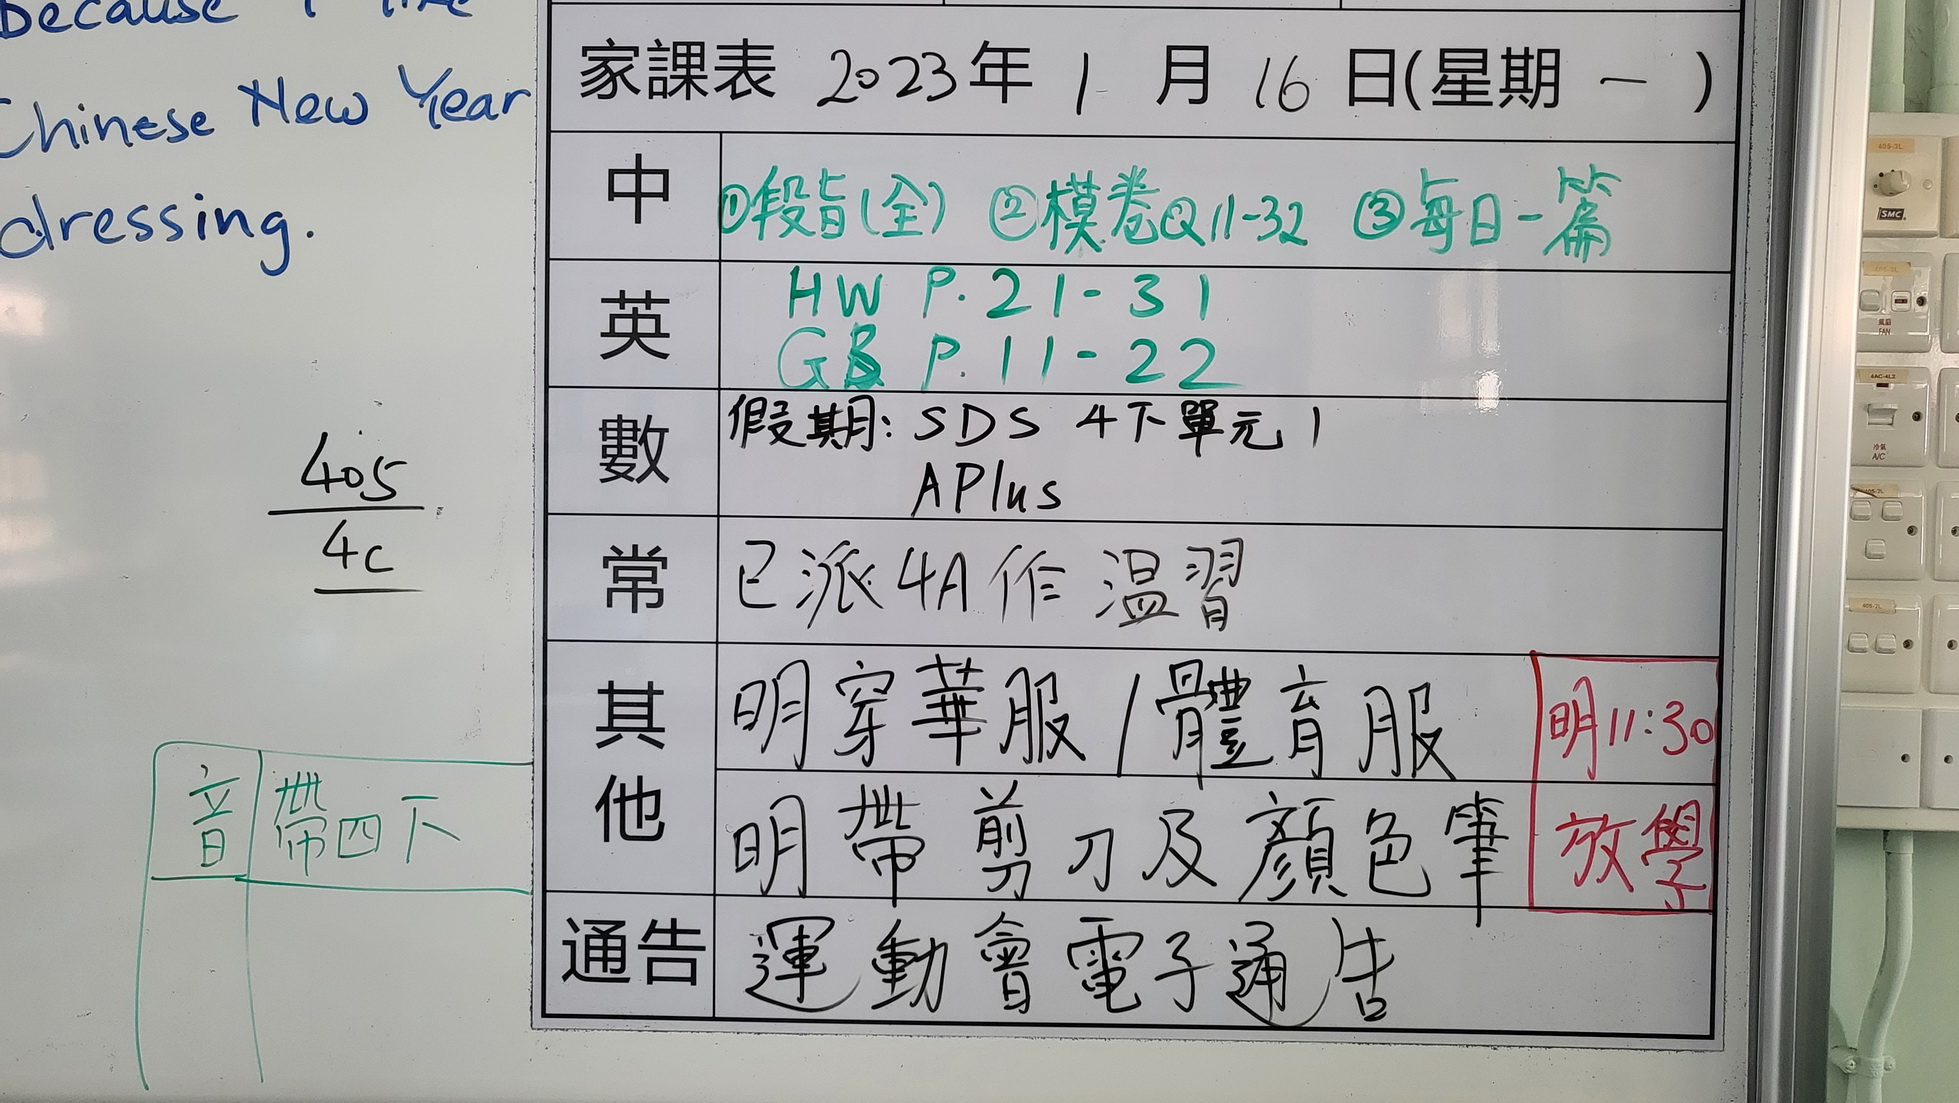 because I like
Chinese New Year
dressing.
家課表 2023年 1 月 16 日(星期 一 )
中 ①段旨(全) ②模卷Q11-32 ③每日一篇
英 HW P.21-31
GB P.11-22
數 假期: SDS 4下單元1
APlus
常 已派4A作 温習
其他 明穿華服/體育服
明帶剪刀及顏色筆
明11:30
放學
通告 運動會電子通告
405
4C
音 帶四下
SMC
氣扇
FAN
4AC-4L2
冷氣
A/C
405-2L